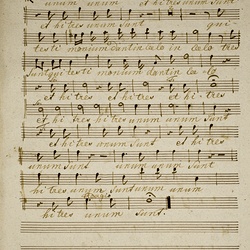 unum unum et hi tres unum sunt
et hi tres unum sunt qui
testi monium dant in caelo in caelo tres
sunt qui testi monium dant in caelo
et hi tres et hi tres et hi tres
et hi tres hi tres unum unum sunt
et hi tres unum sunt et hi tres
unum sunt unum unum unum sunt
hi tres unum sunt unum unum
Adagio
hi tres unum sunt.